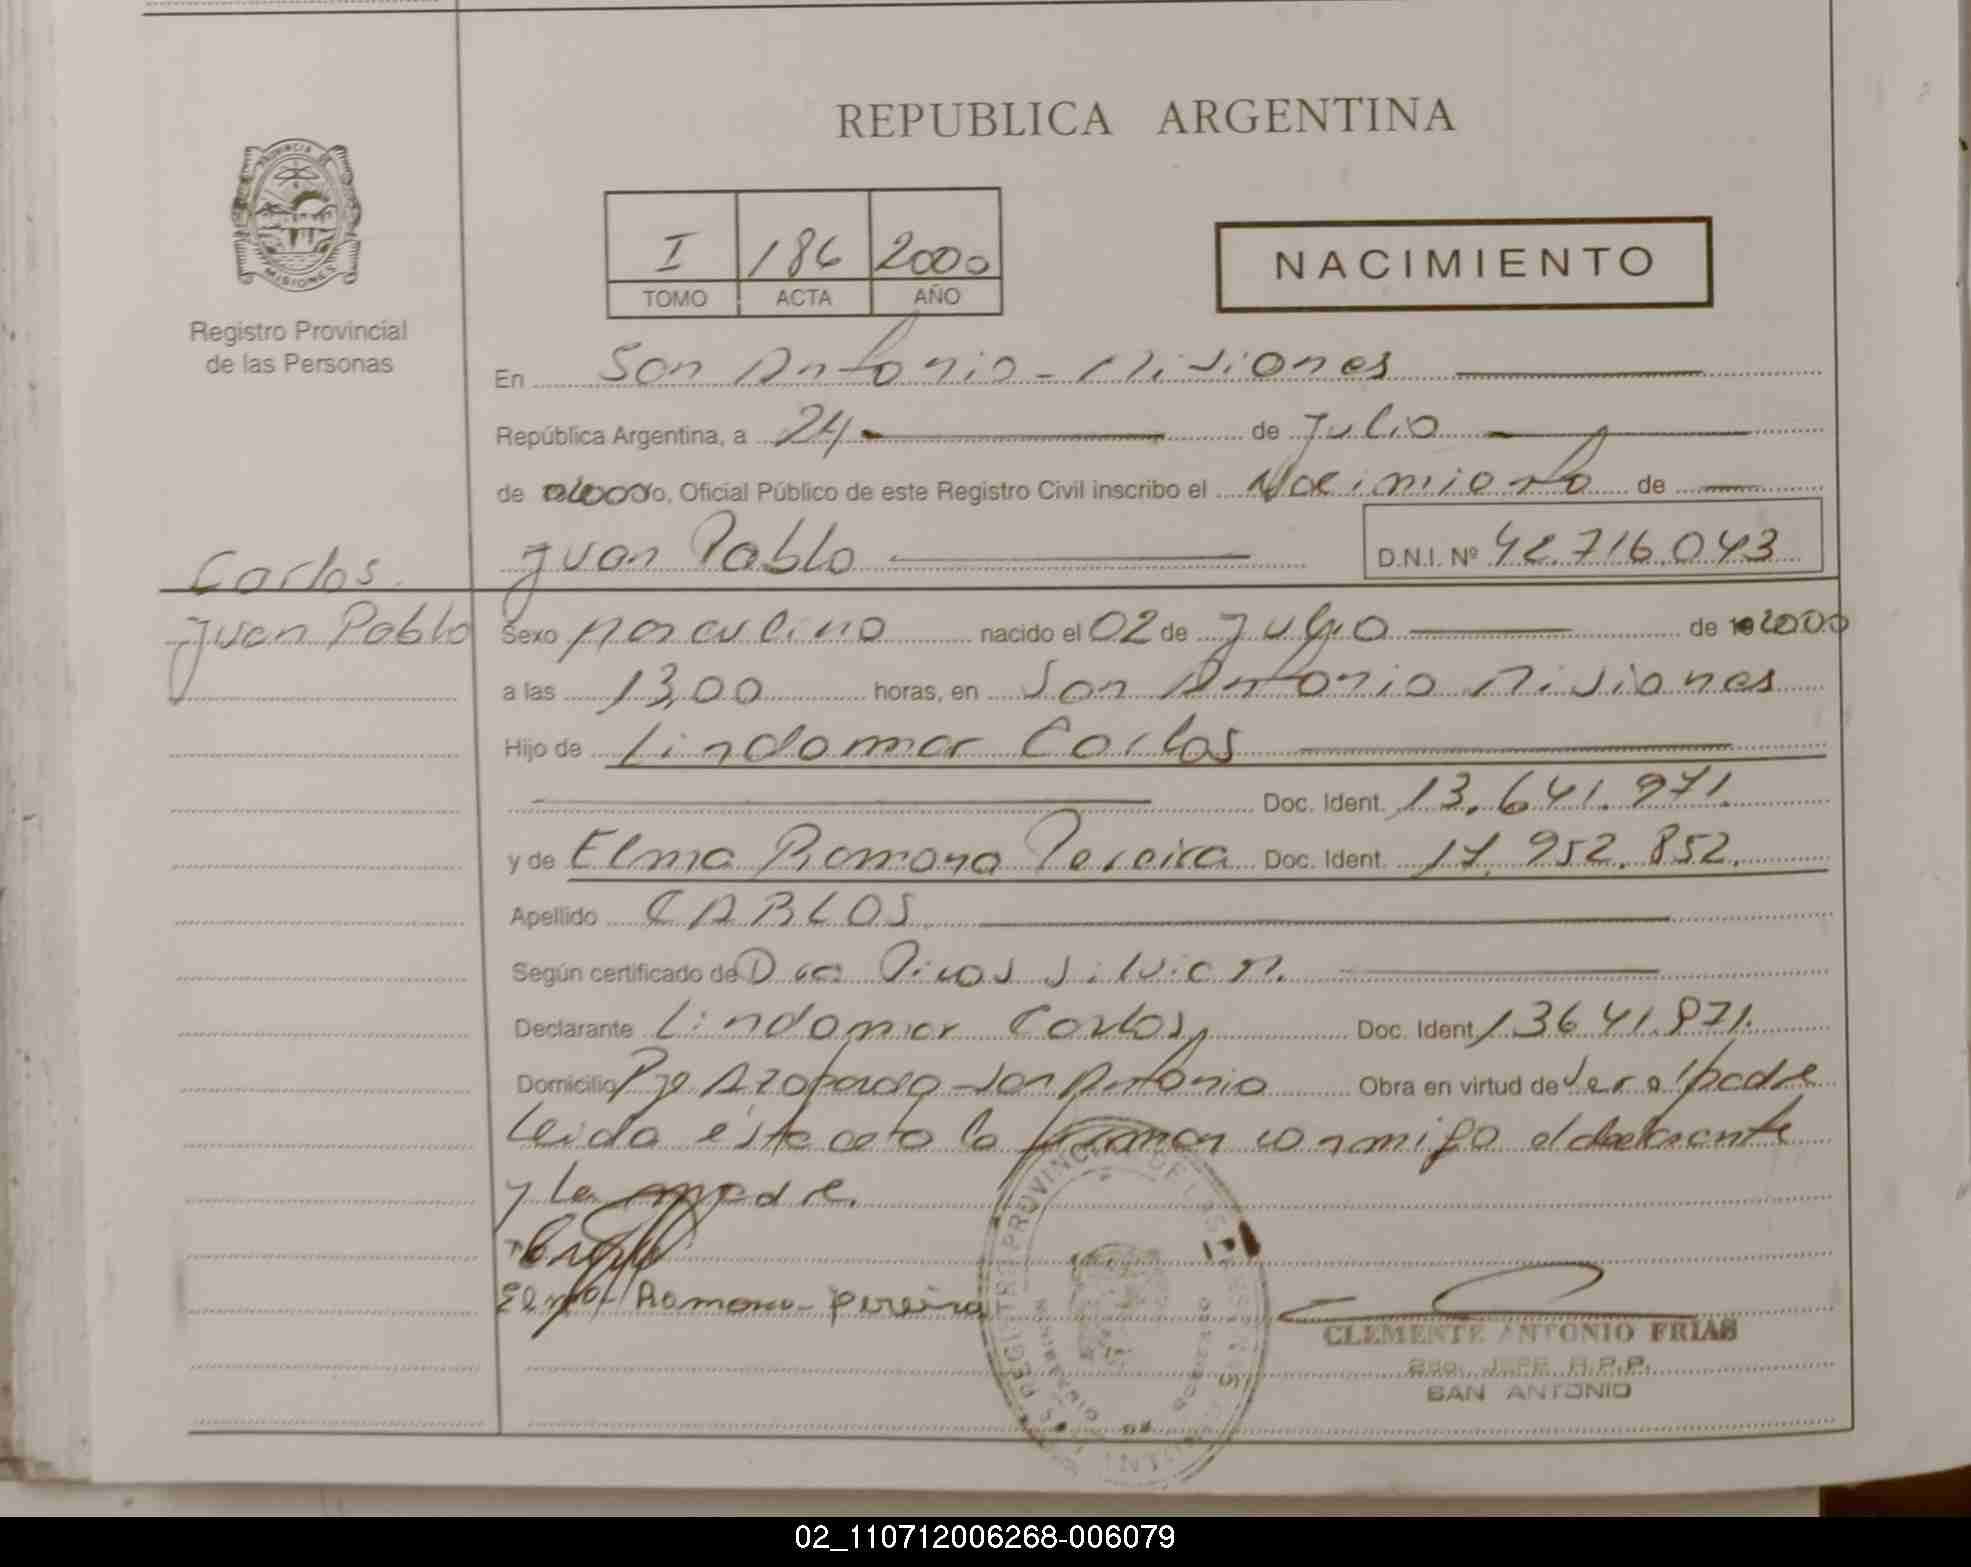 REPUBLICA ARGENTINA
PROVINCIA DE
MISIONES
Registro Provincial
de las Personas
I 186 2000
TOMO ACTA AÑO
NACIMIENTO
En San Antonio - Misiones
República Argentina, a 24 de Julio
de 2000, Oficial Público de este Registro Civil inscribo el Nacimiento de
Carlos
Juan Pablo
Juan Pablo D.N.I. Nº 42.716.043
Sexo masculino nacido el 02 de Julio de 2000
a las 13,00 horas, en San Antonio Misiones
Hijo de Lindomar Carlos
Doc. Ident. 13.641.971.
y de Elma Ramona Pereira Doc. Ident. 17.952.852.
Apellido CARLOS
Según certificado de Dra
Declarante Lindomar Carlos, Doc. Ident 13641.871.
Domicilio San Antonio Obra en virtud de ser el padre
Leida ésta acta la firman conmigo el declarante
y la madre.
Elma Ramona Pereira
CLEMENTE ANTONIO FRIAS
2do. JEFE R.P.P.
SAN ANTONIO
02_110712006268-006079